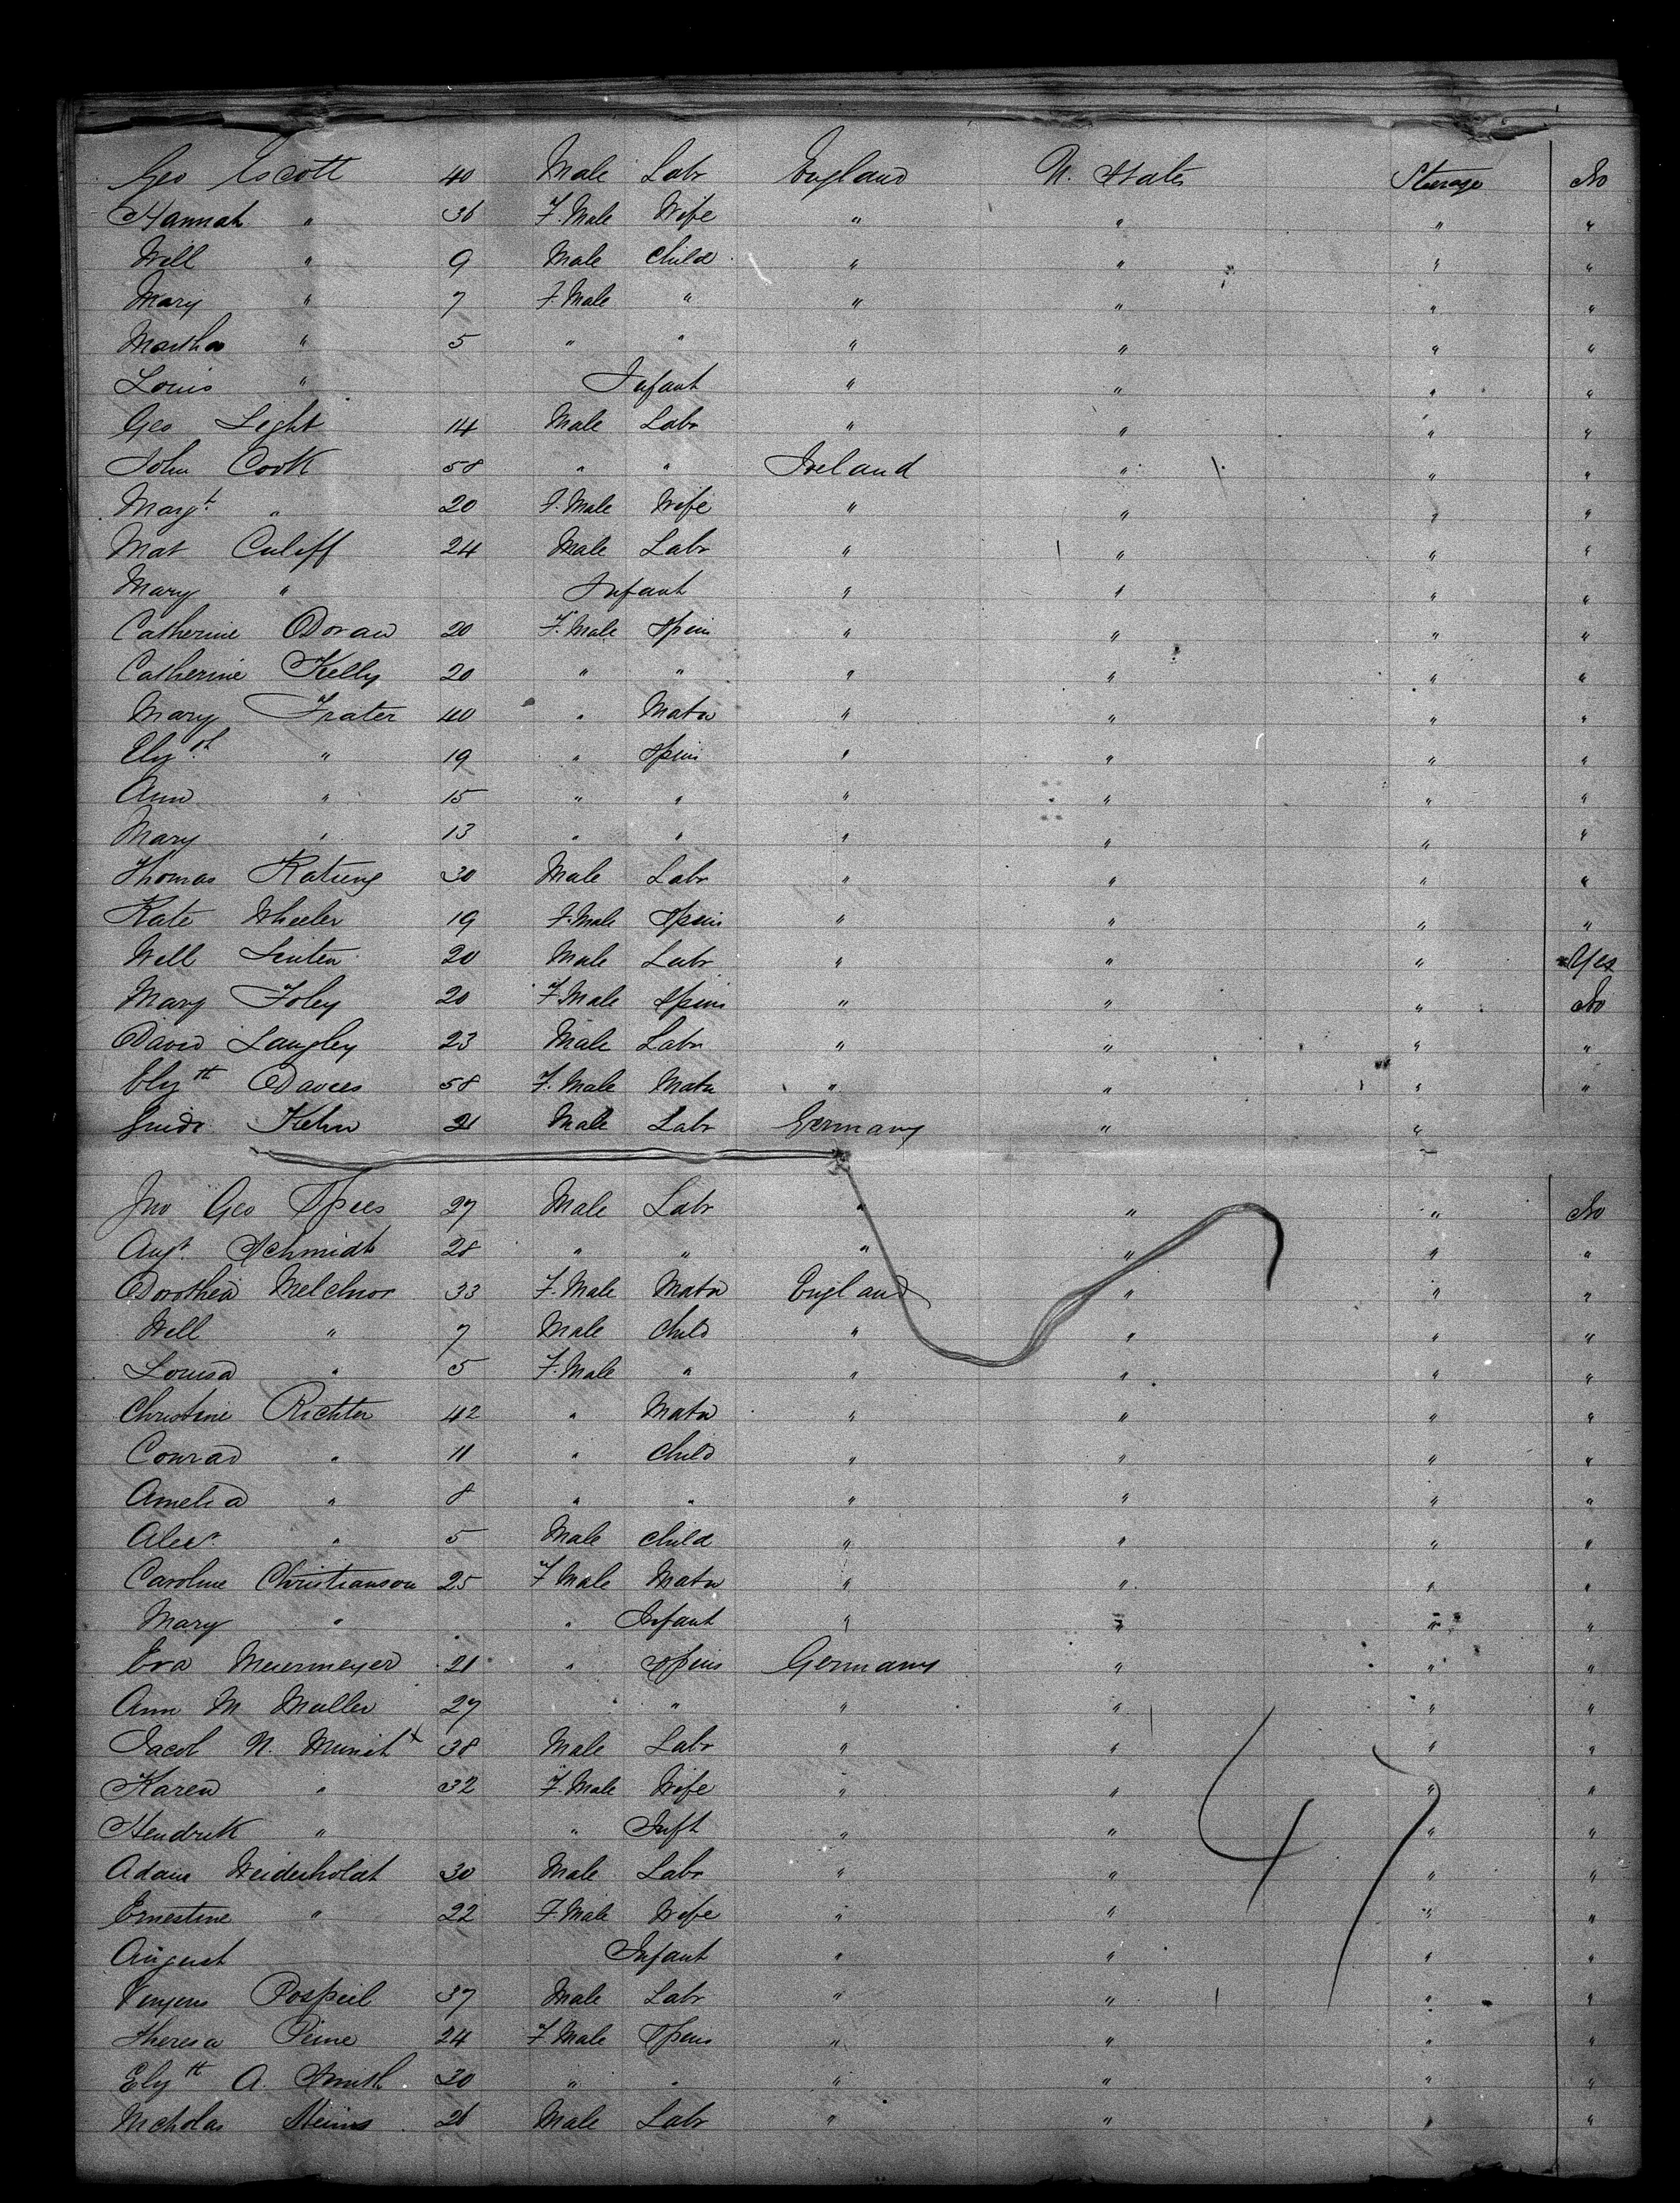 Geo Escott 40 Male Labr England U. States Steerage No
Hannah " 36 F. Male Wife " " " "
Will " 9 Male Child " " " "
Mary " 7 F. Male " " " " "
Martha " 5 " " " " " "
Louis " Infant " " " "
Geo Light 14 Male Labr " " " "
John Cook 58 " " Ireland " " "
Margt " 20 F. Male Wife " " " "
Mat Culiff 24 Male Labr " " " "
Mary " Infant " " " "
Catherine Doran 20 F. Male Spin " " " "
Catherine Kelly 20 " " " " " "
Mary Frater 40 " Matn " " " "
Elizth " 19 " Spin " " " "
Ann " 15 " " " " " "
Mary " 13 " " " " " "
Thomas Katung 30 Male Labr " " " "
Kate Wheeler 19 F. Male Spin " " " "
Will Linten 20 Male Labr " " " Yes
Mary Foley 20 F. Male Spin " " " No
David Langley 23 Male Labr " " " "
Elizth Davees 58 F. Male Matn " " " "
Guido Kehn 21 Male Labr Germany " "
Jno Geo Spees 27 Male Labr " " " No
Augt Schmidt 28 " " " " " "
Dorothea Melchior 33 F. Male Matn England " " "
Will " 7 Male Child " " " "
Louisa " 5 F. Male " " " " "
Christine Richter 42 " Matn " " " "
Conrad " 11 " Child " " " "
Amelia " 8 " " " " " "
Alexr " 5 Male Child " " " "
Caroline Christianson 25 F Male Matn " " " "
Mary " " Infant " " " "
Eva Meiermeyer 21 " Spins Germany " " "
Ann M Muller 27 " " " " " "
Jacob N. Munich 38 Male Labr " " " "
Karen " 32 F. Male Wife " " " "
Hendrik " " Inft " " " "
Adam Weiderholdt 30 Male Labr " " " "
Ernestine " 22 F. Male Wife " " " "
August Infant " " " "
Pospeil 37 Male Labr " " " "
Theresa Peine 24 F Male Spins " " " "
Elizth A. Smith 30 " " " " " "
Nicholas Steims 26 Male Labr " " " "
47